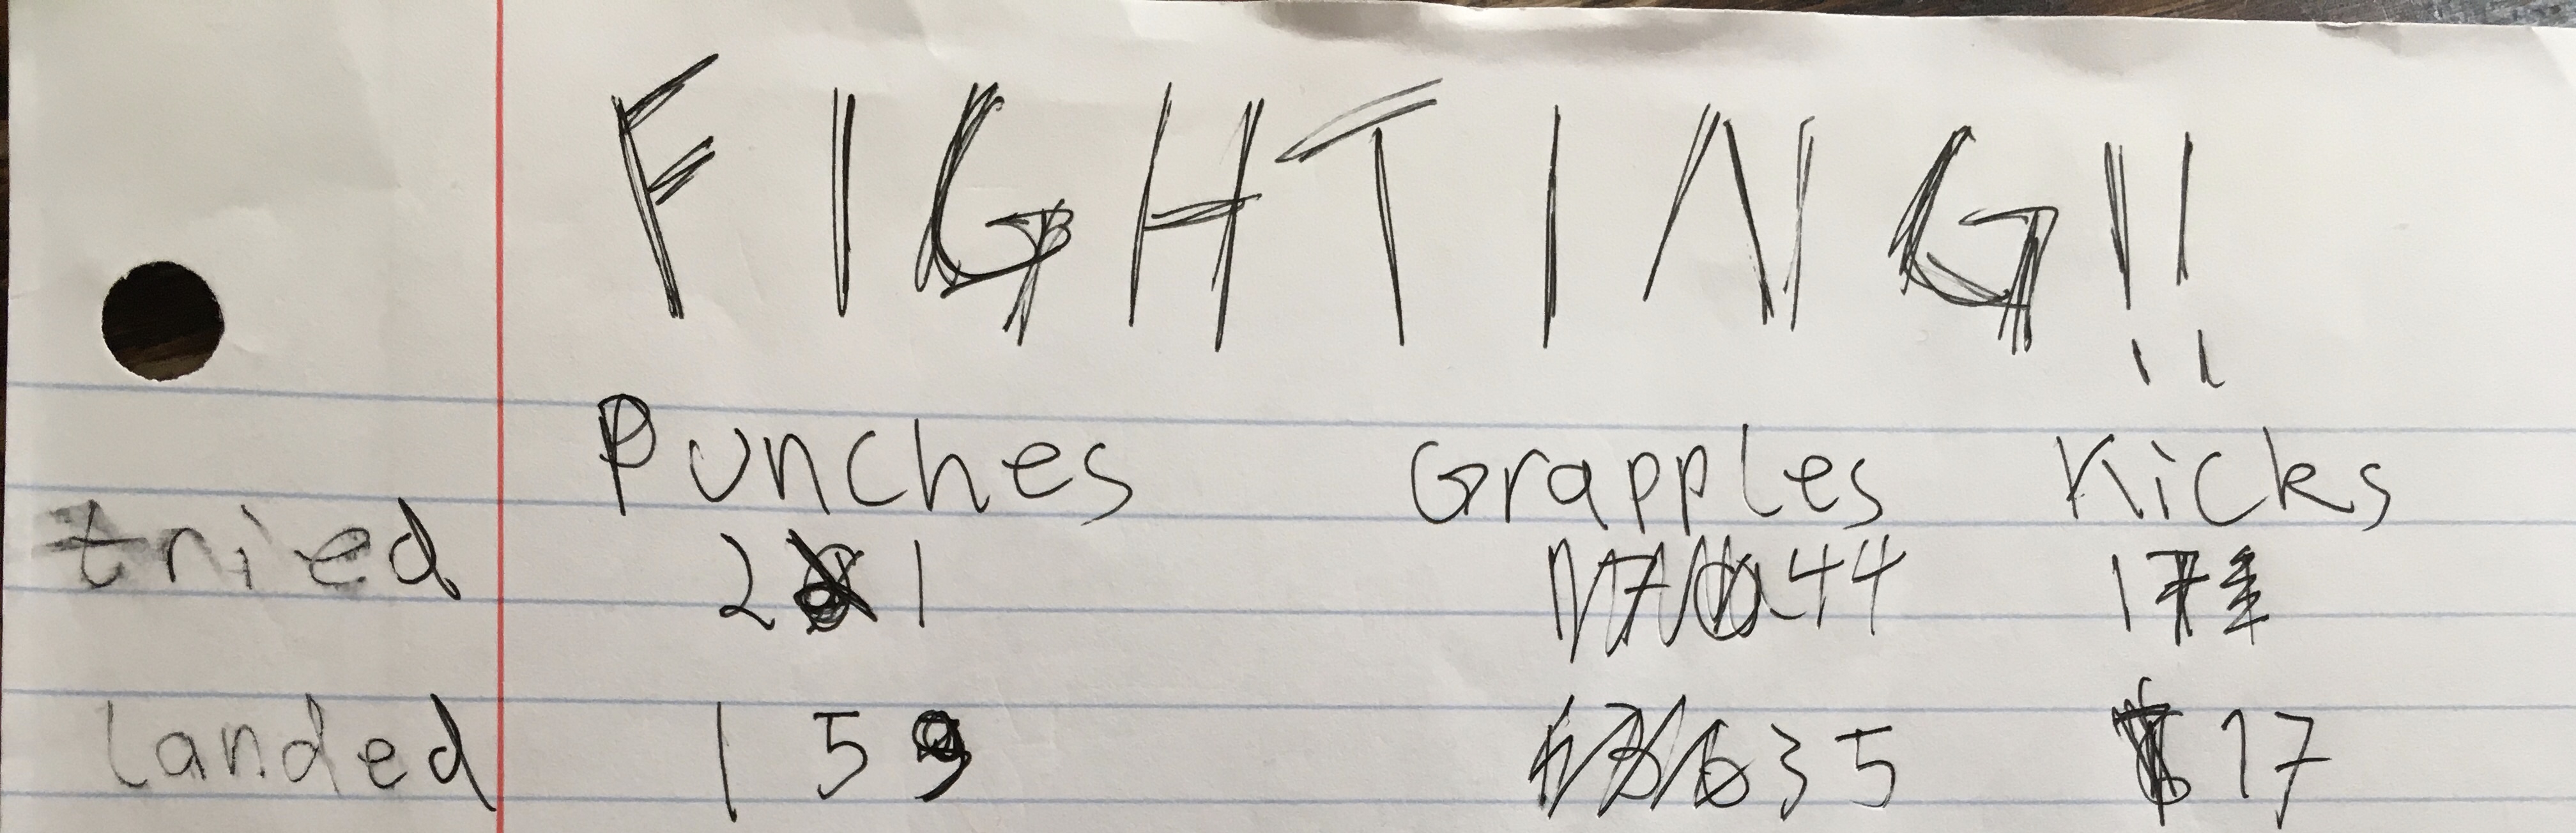 FIGHTING!!
Punches Grapples Kicks
tried 2 1 44
landed 15 35 17